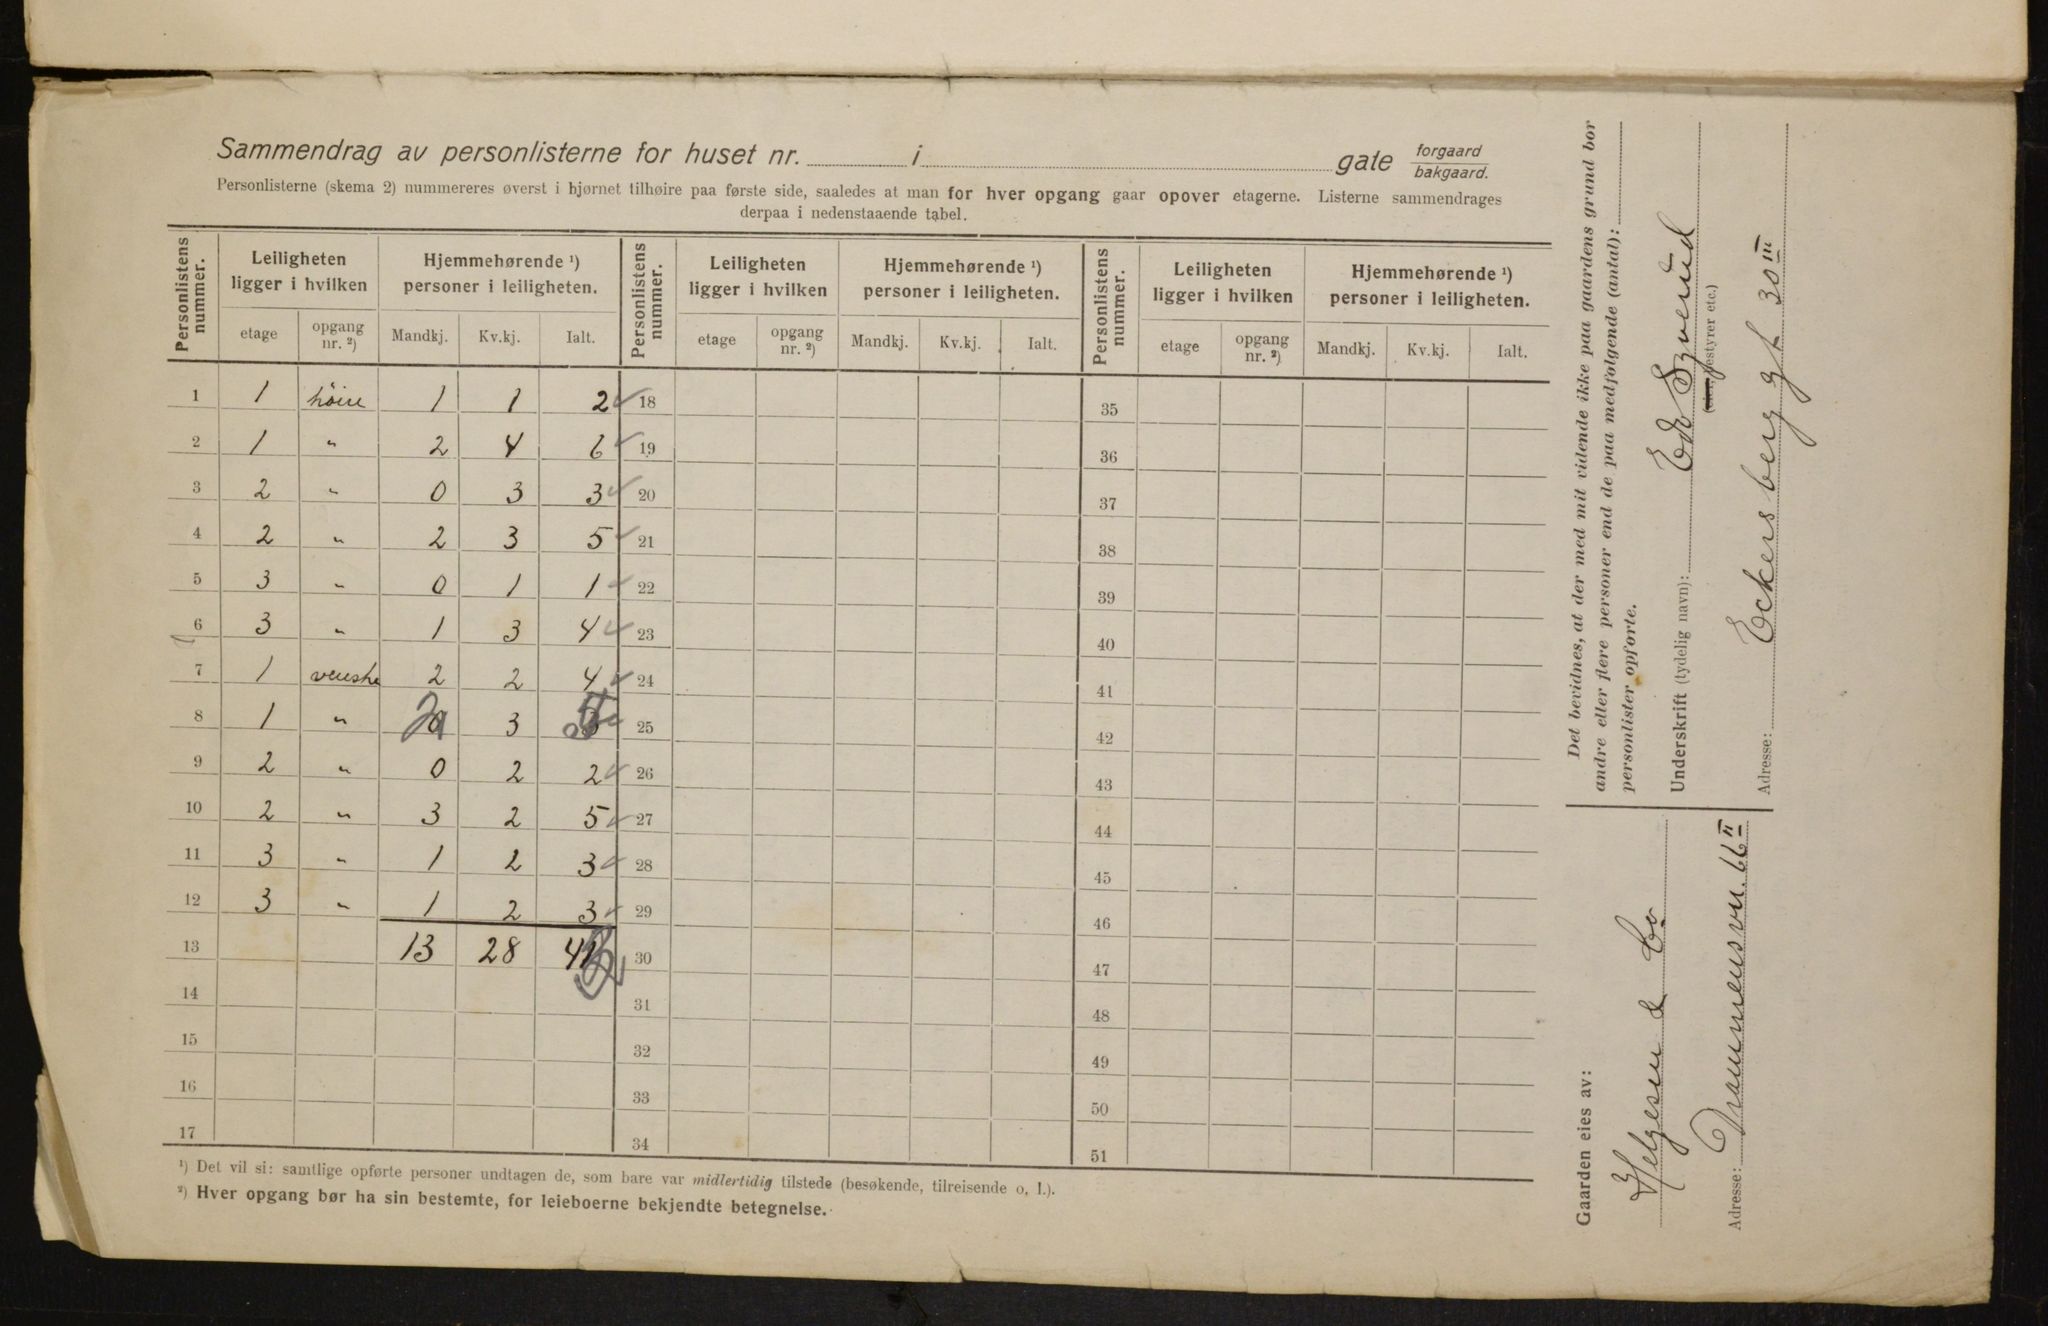 Sammendrag av personlisterne for huset nr. i gate forgaard bakgaard.
Personlisterne (skema 2) nummereres øverst i hjørnet tilhøire paa første side, saaledes at man for hver opgang gaar opover etagerne. Listerne sammendrages
derpaa i nedenstaaende tabel.
Personlistens nummer. Leiligheten ligger i hvilken Hjemmehørende ¹) personer i leiligheten. Personlistens nummer. Leiligheten ligger i hvilken Hjemmehørende ¹) personer i leiligheten. Personlistens nummer. Leiligheten ligger i hvilken Hjemmehørende ¹) personer i leiligheten.
etage opgang nr. ²) Mandkj. Kv.kj. Ialt. etage opgang nr. ²) Mandkj. Kv.kj. Ialt. etage opgang nr. ²) Mandkj. Kv.kj. Ialt.
1 1 høire 1 1 2 18 35
2 1 " 2 4 6 19 36
3 2 " 0 3 3 20 37
4 2 " 2 3 5 21 38
5 3 " 0 1 1 22 39
6 3 " 1 3 4 23 40
7 1 venshe 2 2 4 24 41
8 1 " 3 25 42
9 2 " 0 2 2 26 43
10 2 " 3 2 5 27 44
11 3 " 1 2 3 28 45
12 3 " 1 2 3 29 46
13 13 28 30 47
14 31 48
15 32 49
16 33 50
17 34 51
¹) Det vil si: samtlige opførte personer undtagen de, som bare var midlertidig tilstede (besøkende, tilreisende o. l.).
²) Hver opgang bør ha sin bestemte, for leieboerne bekjendte betegnelse.
Det bevidnes, at der med mit vidende ikke paa gaardens grund bor
andre eller flere personer end de paa medfølgende (antal):
personlister opførte.
Underskrift (tydelig navn):
(eier, bestyrer etc.)
Adresse: Eckersberg gt 30 III
Gaarden eies av:
Helgesen & Co
Adresse: Drammensvn. 66 II